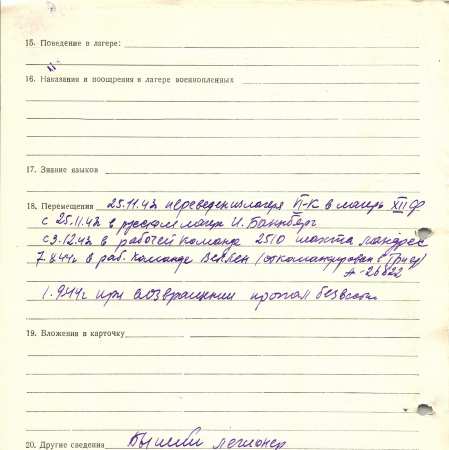 15. Поведение в лагере:
16. Наказания и поощрения в лагере военнопленных
17. Знание языков
18. Перемещения 25.11.42 переведен из лагеря II-К в лагерь XII Ф
с 25.11.42 в русском лагере
с 3.12.42 в рабочей команде 2510 шахта
в раб. команде (откомандирован в Трир)
1.9.44г при возвращении пропал безвести
19. Вложения в карточку
20. Другие сведения Бывший легионер